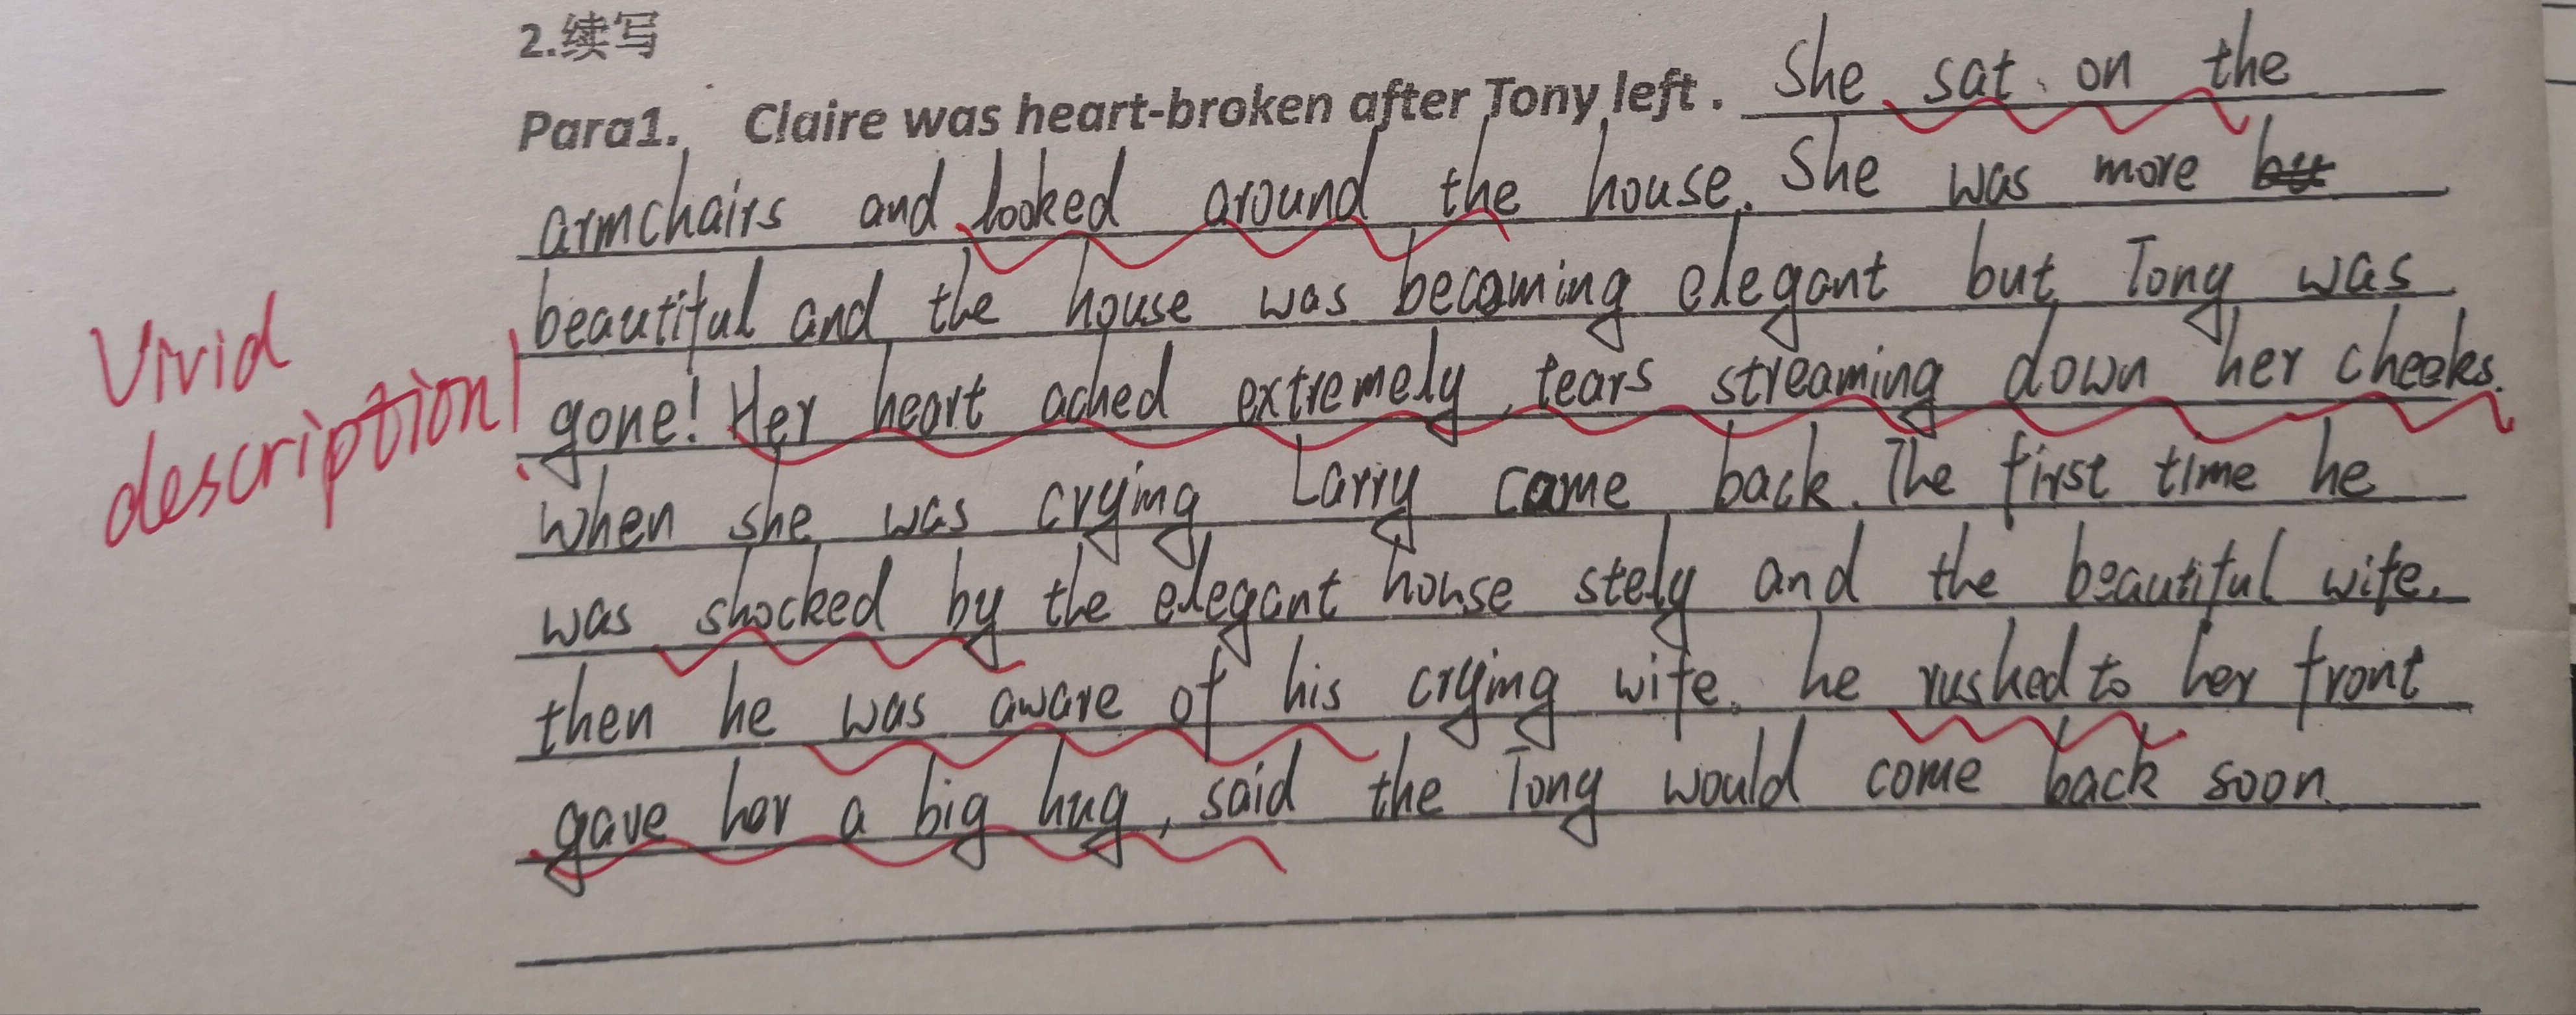 2.续写
Para1. Claire was heart-broken after Tony left. She sat on the
armchairs and looked around the house. She was more
beautiful and the house was becoming elegant but Tony was
gone! Her heart ached extremely, tears streaming down her cheeks.
When she was crying Larry came back. The first time he
was shocked by the elegant house stely and the beautiful wife.
then he was aware of his crying wife. he rushed to her front
gave her a big hug, said the Tony would come back soon.
Vivid
description!